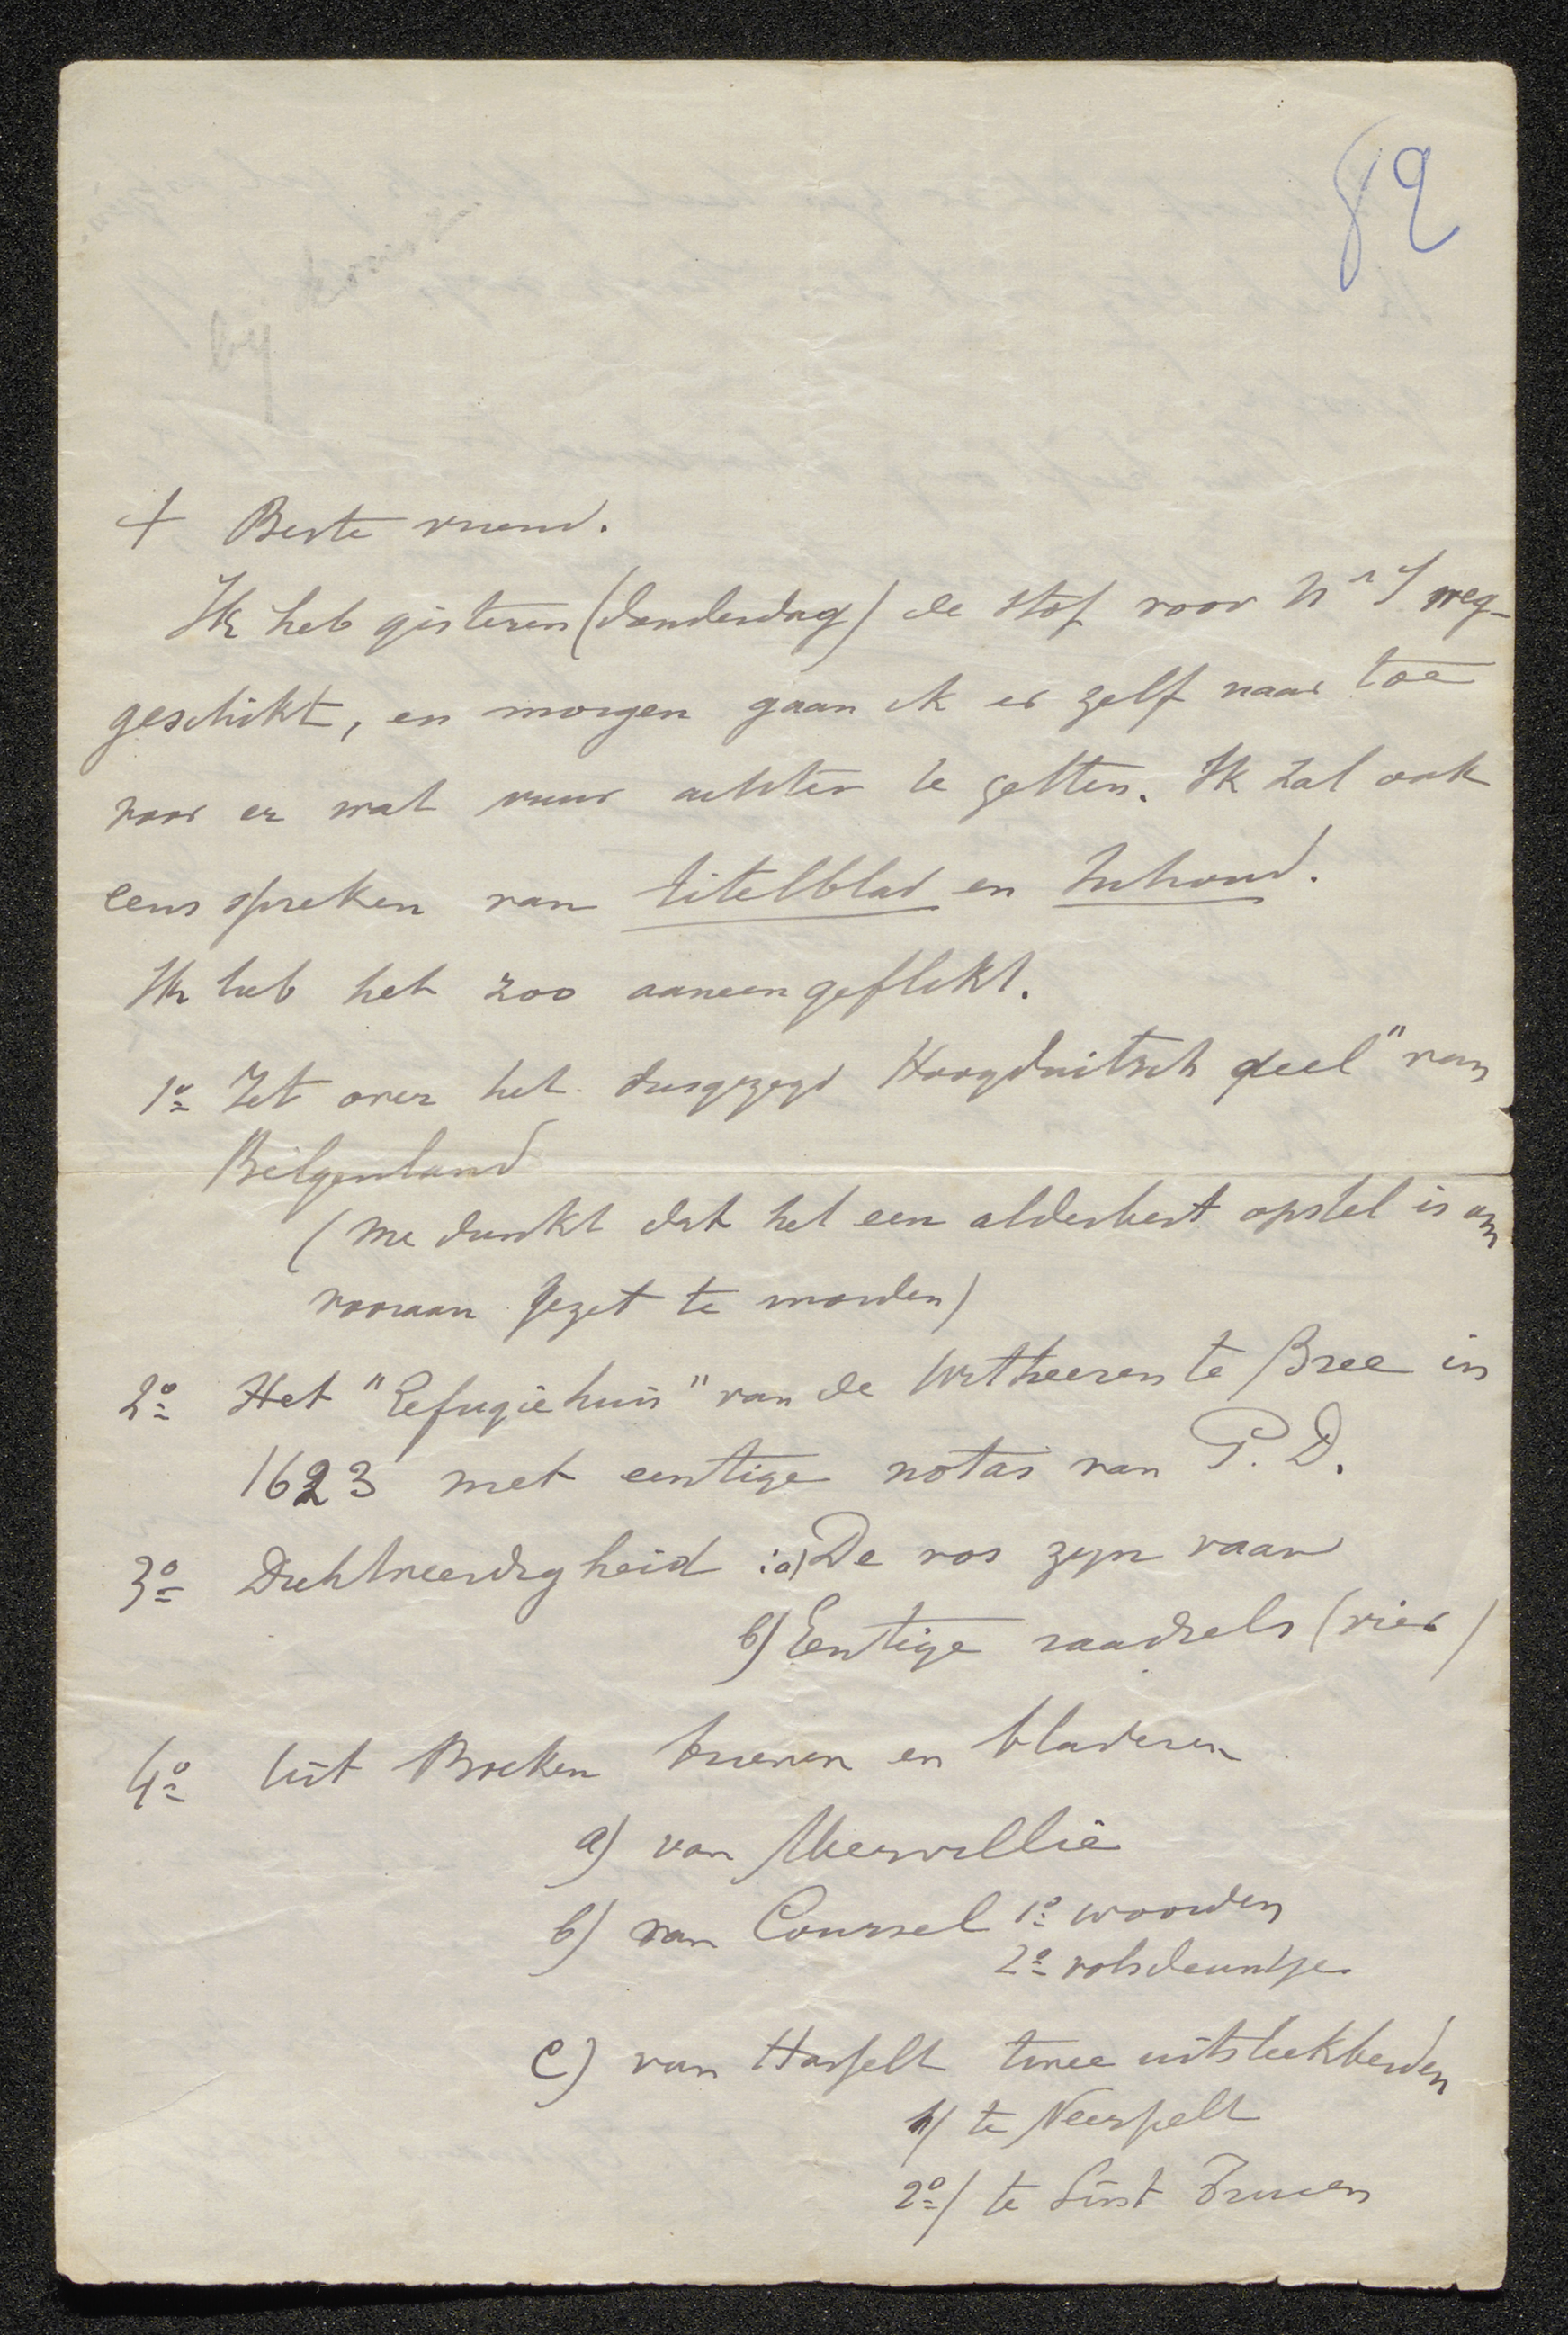 82
+ Beste vriend.
Ik heb gisteren (donderdag) de stof voor Nr 1 weg-
geschikt, en morgen gaan ik er zelf naar toe
voor er wat vuur achter te zetten. Ik zal ook
eens spreken van titelblad en Inhoud.
Ik heb het zoo aaneengeflikt.
1º Iet over het dusgezegd Hoogduitsch deel" van
Belgenland
(me dunkt dat het een alderbest opstel is om
vooraan gezet te worden)
2º Het "Refugiehuis" van de Witheeren te Bree in
1623 met eentige notas van P. D.
3º Dichtveerdigheid : a) De vos zyn vaar
b) Eentige raadsels (vier)
4º Uit Boeken brieven en bladeren
a) van Meerwillie
b) van Coursel 1º woorden
2º volsdeuntje
c) van Hasselt twee uitsteekberden
1) te Neerpelt
2º) te Sint Truien